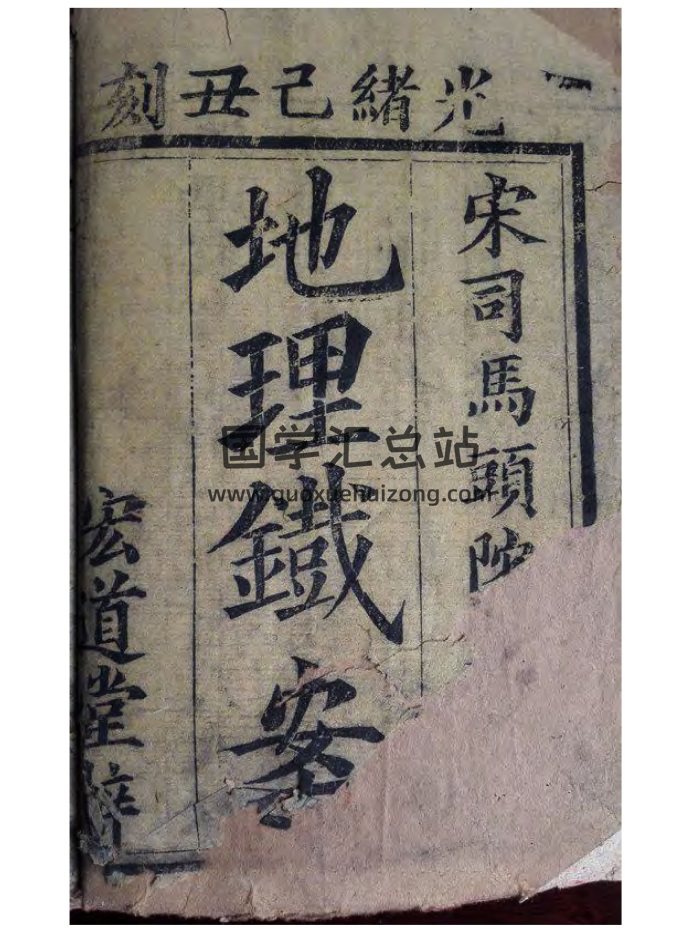 光緒己丑刻
宋司馬頭陀
地理鐵案
宏道堂
国学汇总站
www.guoxuehuizong.com